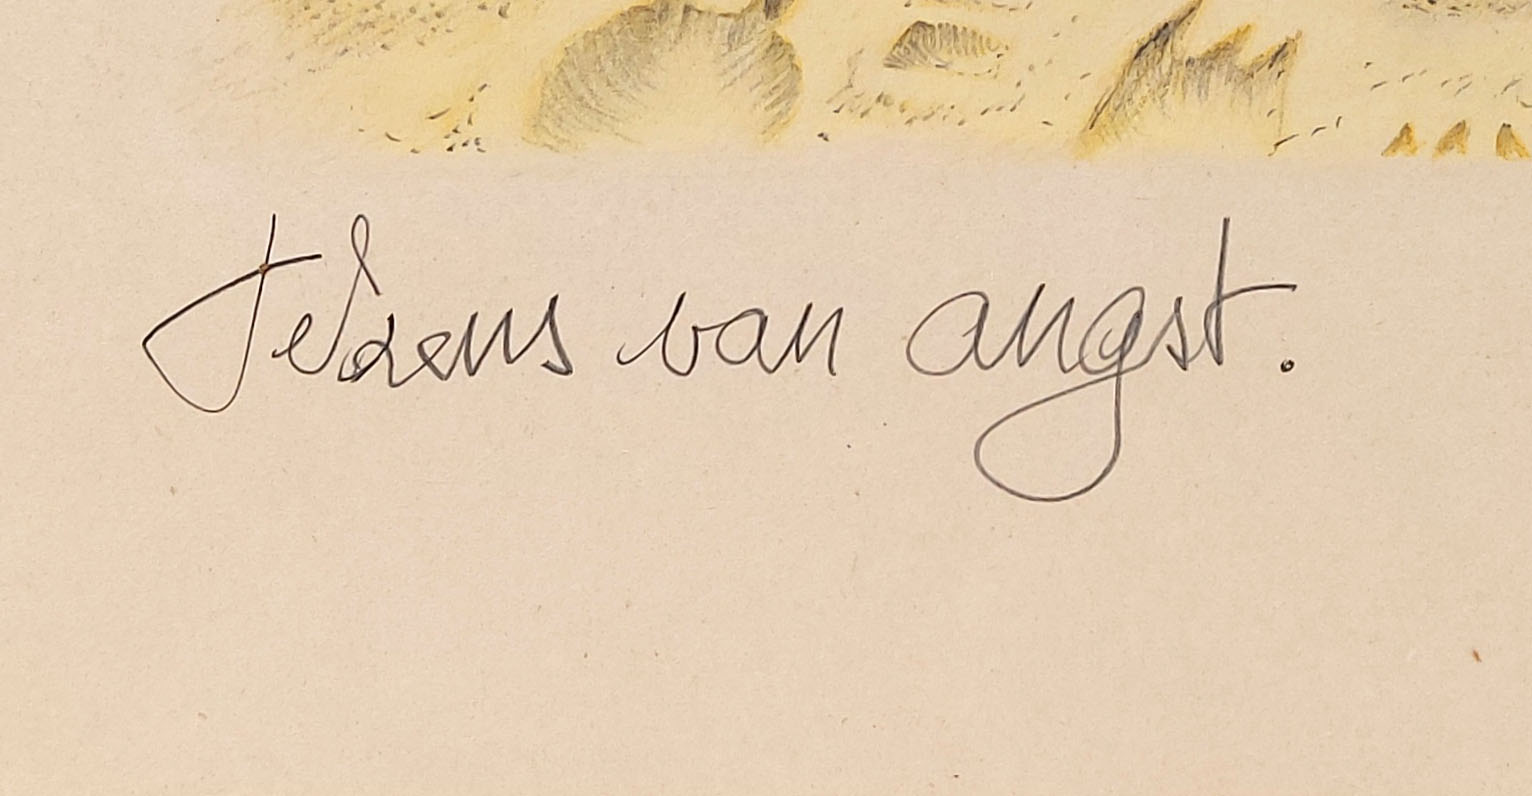 Tekens van angst.